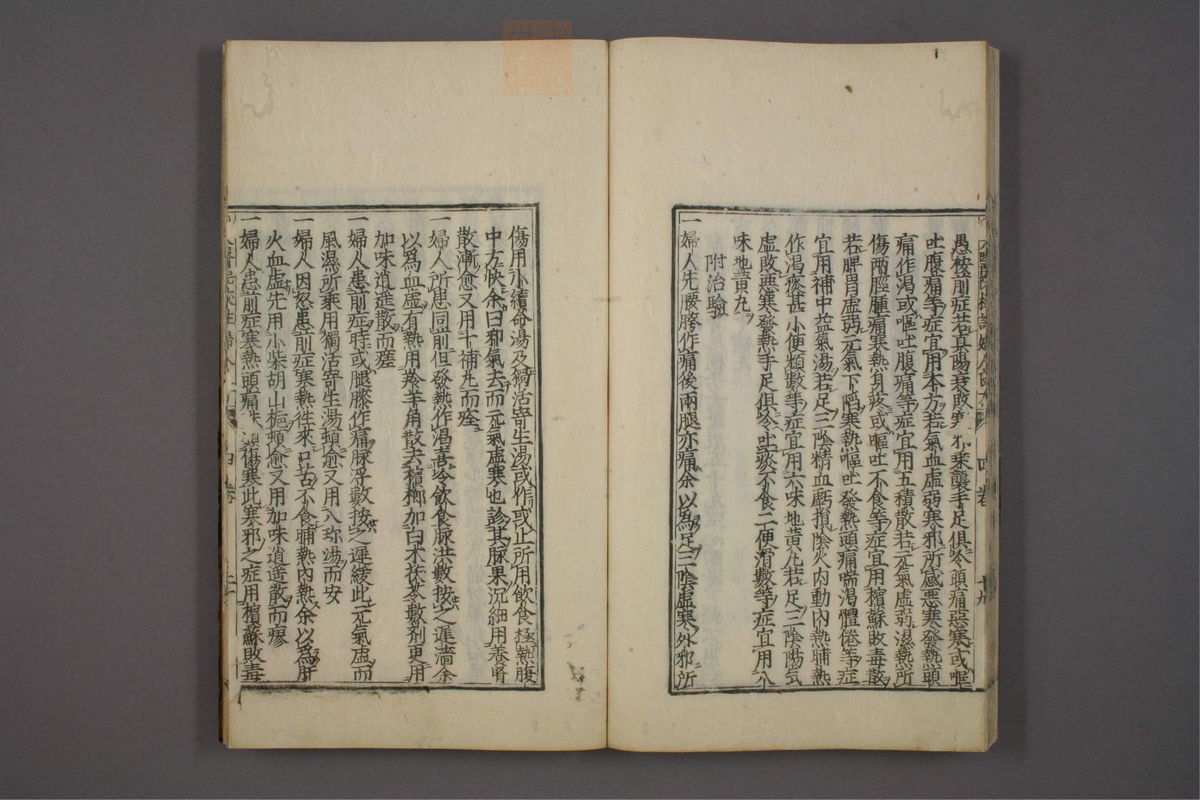 愚按前症若真陽衰敗寒邪乘襲手足俱冷頭痛惡寒或嘔
吐腹痛等症宜用本方若氣血虛弱寒邪所感惡寒發熱頭
痛作渴或嘔吐腹痛等症宜用五積散若元氣虛弱濕熱所
傷兩脛腫痛寒熱身疼或嘔吐不食等症宜用檳蘇敗毒散
若脾胃虛弱元氣下陷寒熱嘔吐發熱頭痛喘渴體倦等症
宜用補中益氣湯若足三陰精血虧損陰火內動內熱晡熱
作渴痰甚小便頻數等症宜用六味地黃丸若足三陰陽氣
虛敗惡寒發熱手足俱冷吐痰不食二便滑數等症宜用八
味地黃丸
附治驗
一婦人先腰胯作痛後兩腿亦痛余以為足三陰虛寒外邪所
四卷 十九
傷用小續命湯及獨活寄生湯或作或止所用飲食極熱腹
中方快余曰邪氣去而元氣虛寒也診其脉果沉細用養腎
散漸愈又用十補丸而痊
一婦人所患同前但發熱作渴喜冷飲食脉洪數按之遲濇余
以為血虛有熱用羚羊角散去檳榔加白术茯苓數劑更用
加味逍遥散而瘥
一婦人患前症時或腿膝作痛脉浮數按之遲緩此元氣虛而
風濕所乘用獨活寄生湯頓愈又用八珍湯而安
一婦人因怒患前症寒熱徃來口苦不食晡熱內熱余以為肝
火血虛先用小柴胡山梔頓愈又用加味逍遥散而瘳
一婦人患前症寒熱頭痛殊類傷寒此寒邪之症用檳蘇敗毒
四卷 二十